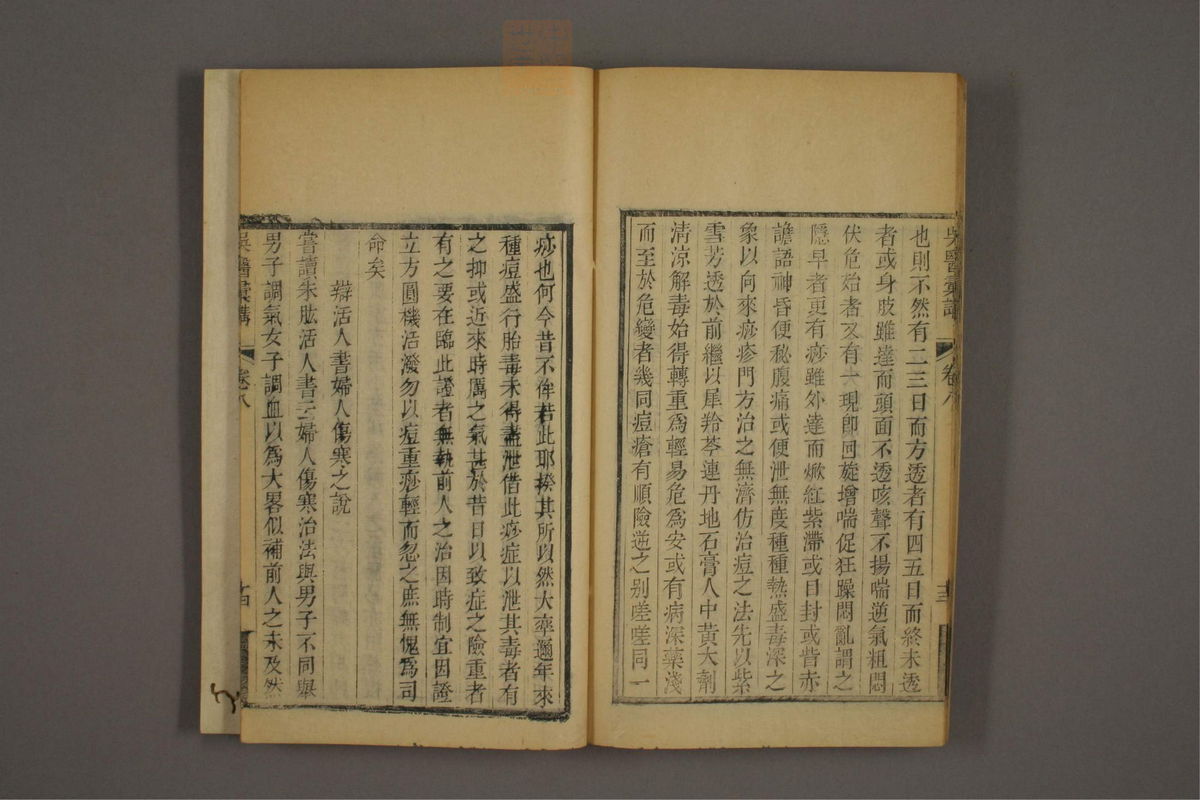 也則不然有二三日而方透者有四五日而終未透
者或身肢雖達而頭面不透咳聲不揚喘逆氣粗悶
伏危殆者又有一現卽回旋增喘促狂躁悶亂謂之
隱早者更有痧雖外達而焮紅紫滯或目封或眥赤
譫語神昏便秘腹痛或便泄無度種種熱盛毒深之
象以向來痧疹門方治之無濟仿治痘之法先以紫
雪芳透於前繼以犀羚芩連丹地石膏人中黃大劑
清涼解毒始得轉重爲輕易危爲安或有病深藥淺
而至於危變者幾同痘瘡有順險逆之別嗟嗟同一
吳醫彙講
卷八
十三
痧也何今昔不侔若此耶揆其所以然大率邇年來
種痘盛行胎毒未得盡泄借此痧症以泄其毒者有
之抑或近來時厲之氣甚於昔日以致症之險重者
有之要在臨此證者無執前人之治因時制宜因證
立方圓機活潑勿以痘重痧輕而忽之庶無愧爲司
命矣
辯活人書婦人傷寒之說
嘗讀朱肱活人書云婦人傷寒治法與男子不同舉
男子調氣女子調血以爲大畧似補前人之未及然
吳醫彙講
卷八
十四